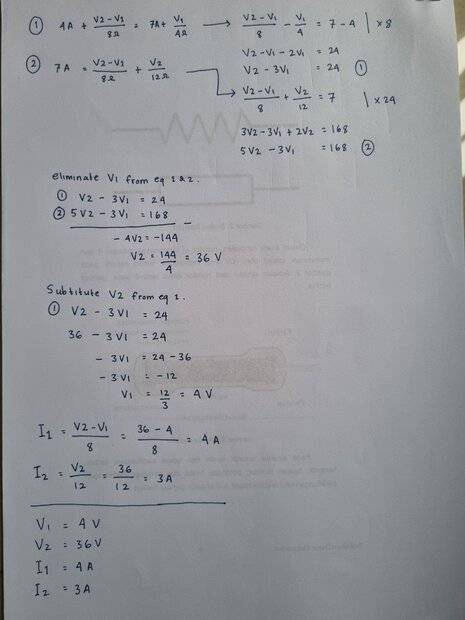 ① 4A + (V2-V1)/8Ω = 7A + V1/4Ω → (V2-V1)/8 - V1/4 = 7 - 4 | x 8
V2 - V1 - 2V1 = 24
V2 - 3V1 = 24 ①
② 7A = (V2-V1)/8Ω + V2/12Ω → (V2-V1)/8 + V2/12 = 7 | x 24
3V2 - 3V1 + 2V2 = 168
5V2 - 3V1 = 168 ②
eliminate V1 from eq 1 & 2.
① V2 - 3V1 = 24
② 5V2 - 3V1 = 168 -
- 4V2 = -144
V2 = 144/4 = 36 V
Subtitute V2 from eq 1.
① V2 - 3V1 = 24
36 - 3V1 = 24
- 3V1 = 24 - 36
- 3V1 = -12
V1 = 12/3 = 4V
I1 = (V2-V1)/8 = (36 - 4)/8 = 4A
I2 = V2/12 = 36/12 = 3A
V1 = 4V
V2 = 36V
I1 = 4A
I2 = 3A